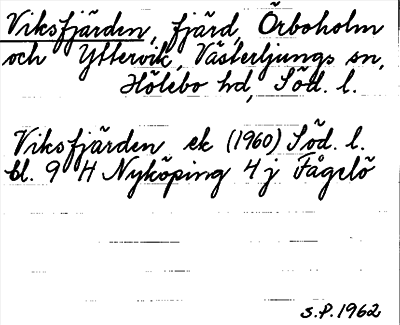 Viksfjärden, fjärd, Örboholm
och Yttervik, Västerljungs sn,
Hölebo hd, Söd. l.
Viksfjärden ek (1960) Söd. l.
bl. 9 H Nyköping 4 j Fågelö
S.P. 1962